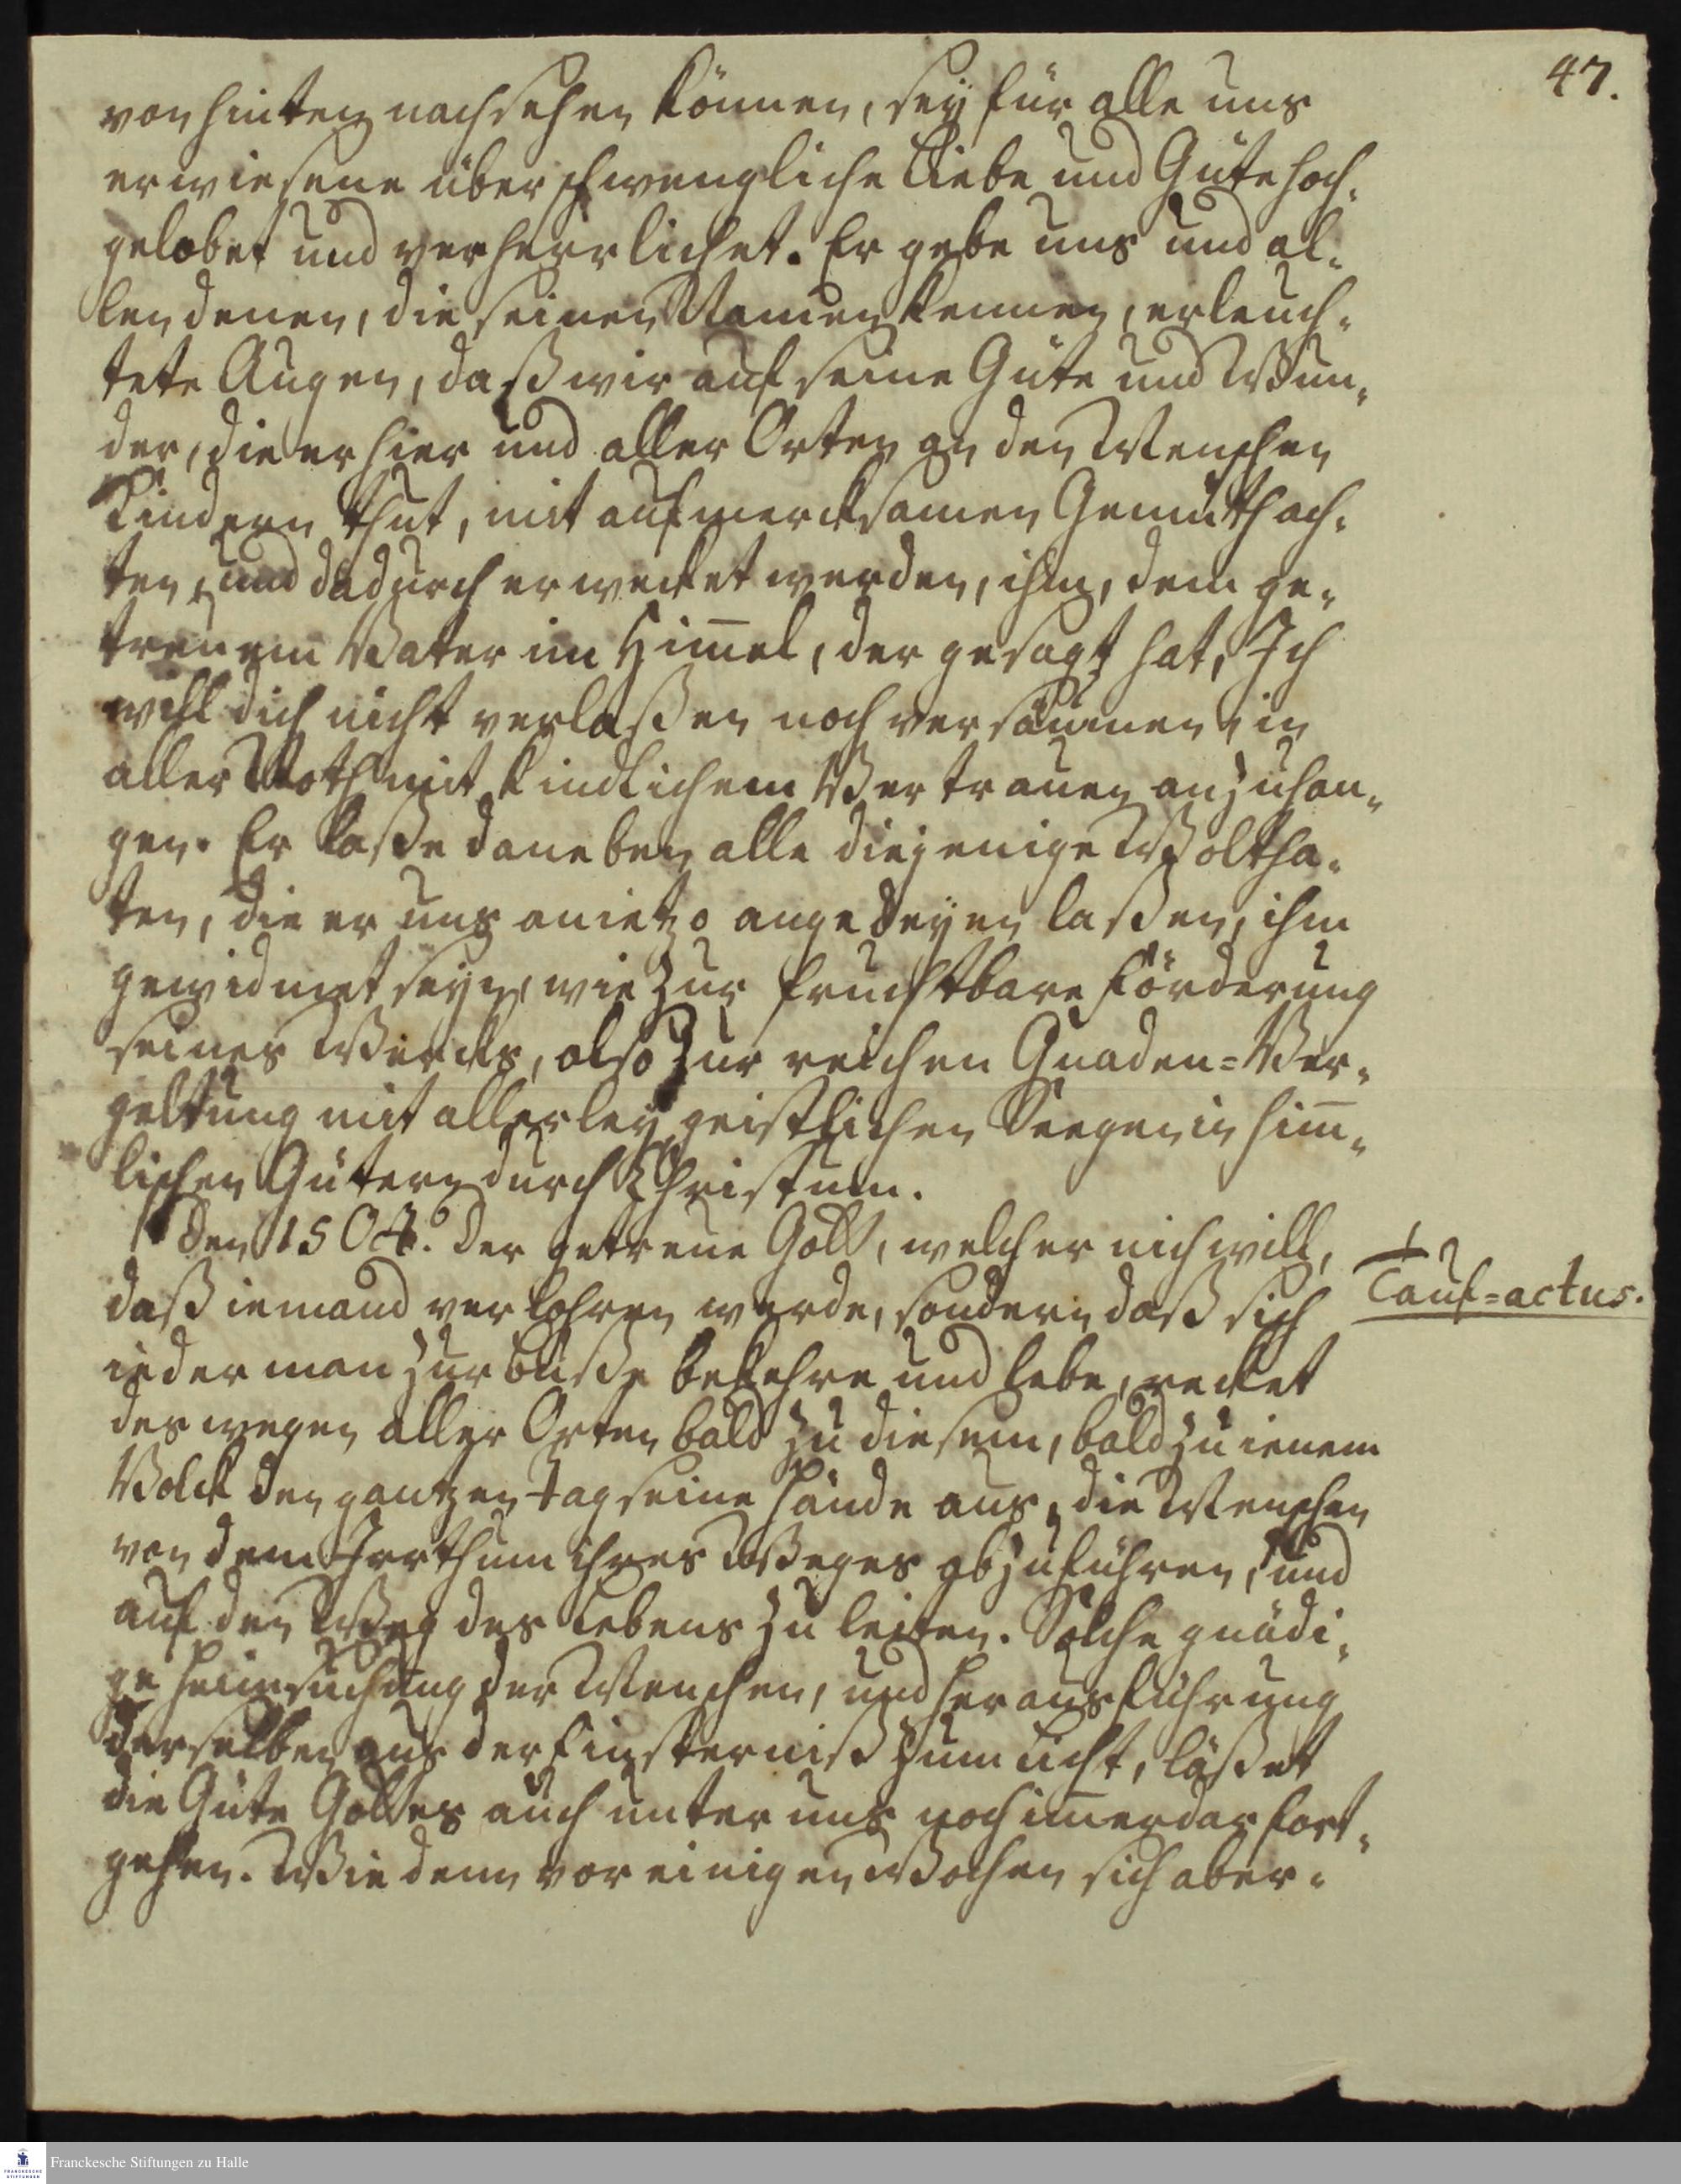 47.
von hinten nachsehen können, sey für alle uns
erwiesene überschwengliche Liebe und Güte hoch-
gelobet und verherrlichet. Er gebe uns und al-
len denen, die seinen Namen kennen, erleuch-
tete Augen, daß wir auf seine Güte und Wun-
der, die er hier und aller Orten an den Menschen
Kindern thut, mit aufmercksamen Gemüth ach-
ten, und dadurch erwecket werden, ihm, dem ge-
treuem Vater im Him̄el, der gesagt hat, Ich
will dich nicht verlaßen noch versäumen, in
aller Noth mit kindlichem Vertrauen anzuhan-
gen. Er laße daneben alle diejenige Woltha-
ten, die er uns anietzo angedeyen laßen, ihm
gewidmet seyn, wie zur fruchtbare Förderung
seines Wercks, also zur reichen Gnaden=Ver-
geltung mit allerley geistlichen Seegen in him̄-
lischen Gütern durch Christum.
Den 15 Oct. Der getreue Gott, welcher nich will,
daß iemand verlohren werde, sondern daß sich
iederman zur Buße bekehre und lebe, recket
deswegen aller Orten bald zu diesem, bald zu ienem
Volck den gantzen Tag seine Hände aus, die Menschen
von dem Irrthum ihres Weges abzuführen, und
auf den Weg des Lebens zu leiten. Solche gnädi-
ge Heimsuchung der Menschen, und Herausführung
derselben aus der Finsterniß zum Licht, läßet
die Güte Gottes auch unter uns noch im̄erdar fort-
gehen. Wie denn vor einigen Wochen sich aber-
Tauf=actus.
Franckesche Stiftungen zu Halle
FRANCKESCHE
STIFTUNGEN